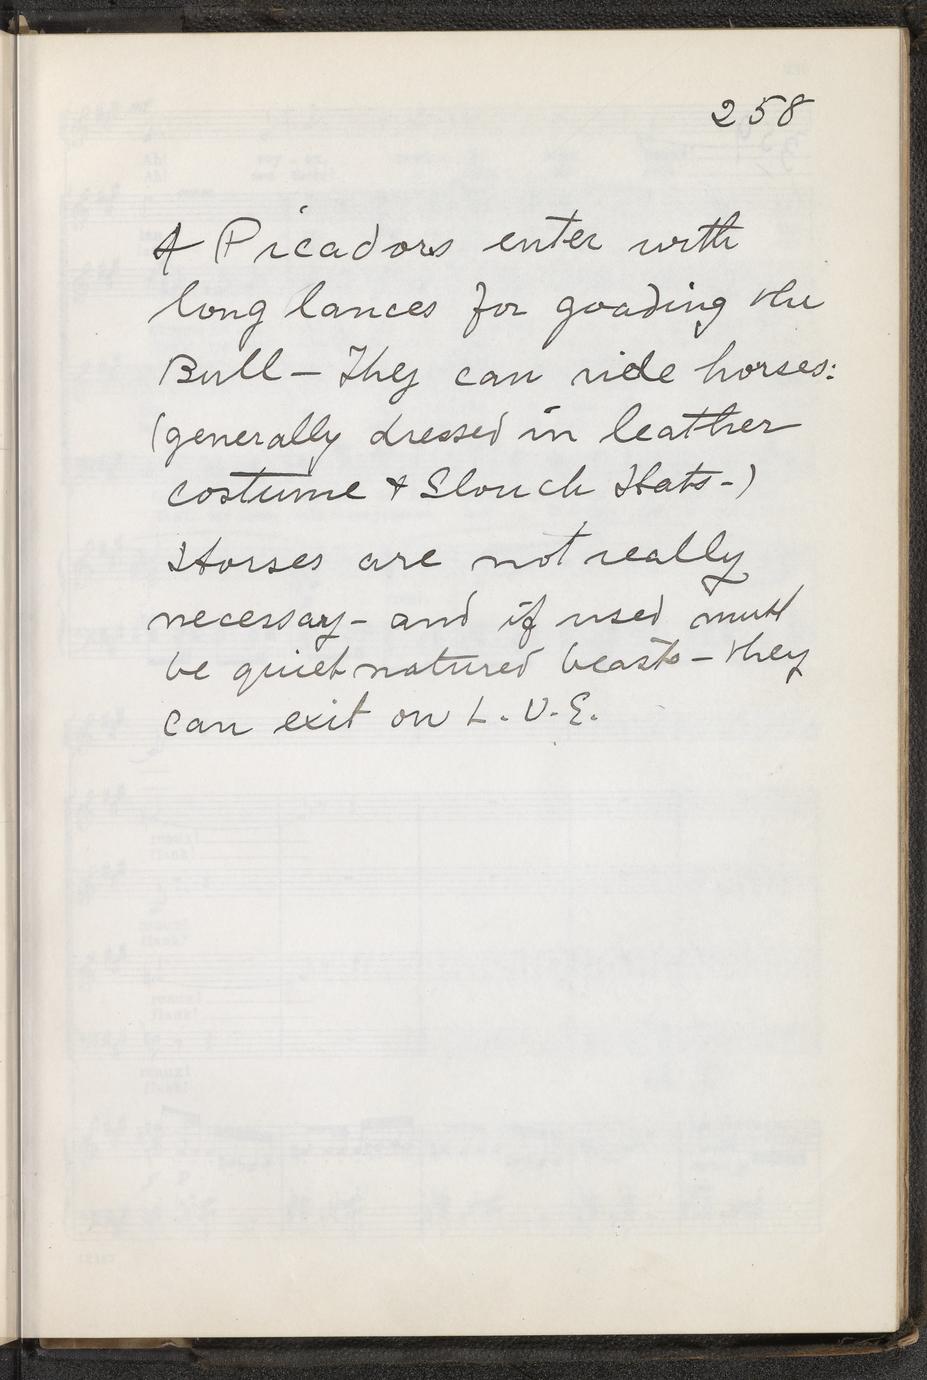 258
4 Picadors enter with
long lances for goading the
Bull - They can ride horses:
(generally dressed in leather
costume & Slouch Hats-)
Horses are not really
necessay - and if used must
be quiet natured beasts - they
can exit on L.U.E.